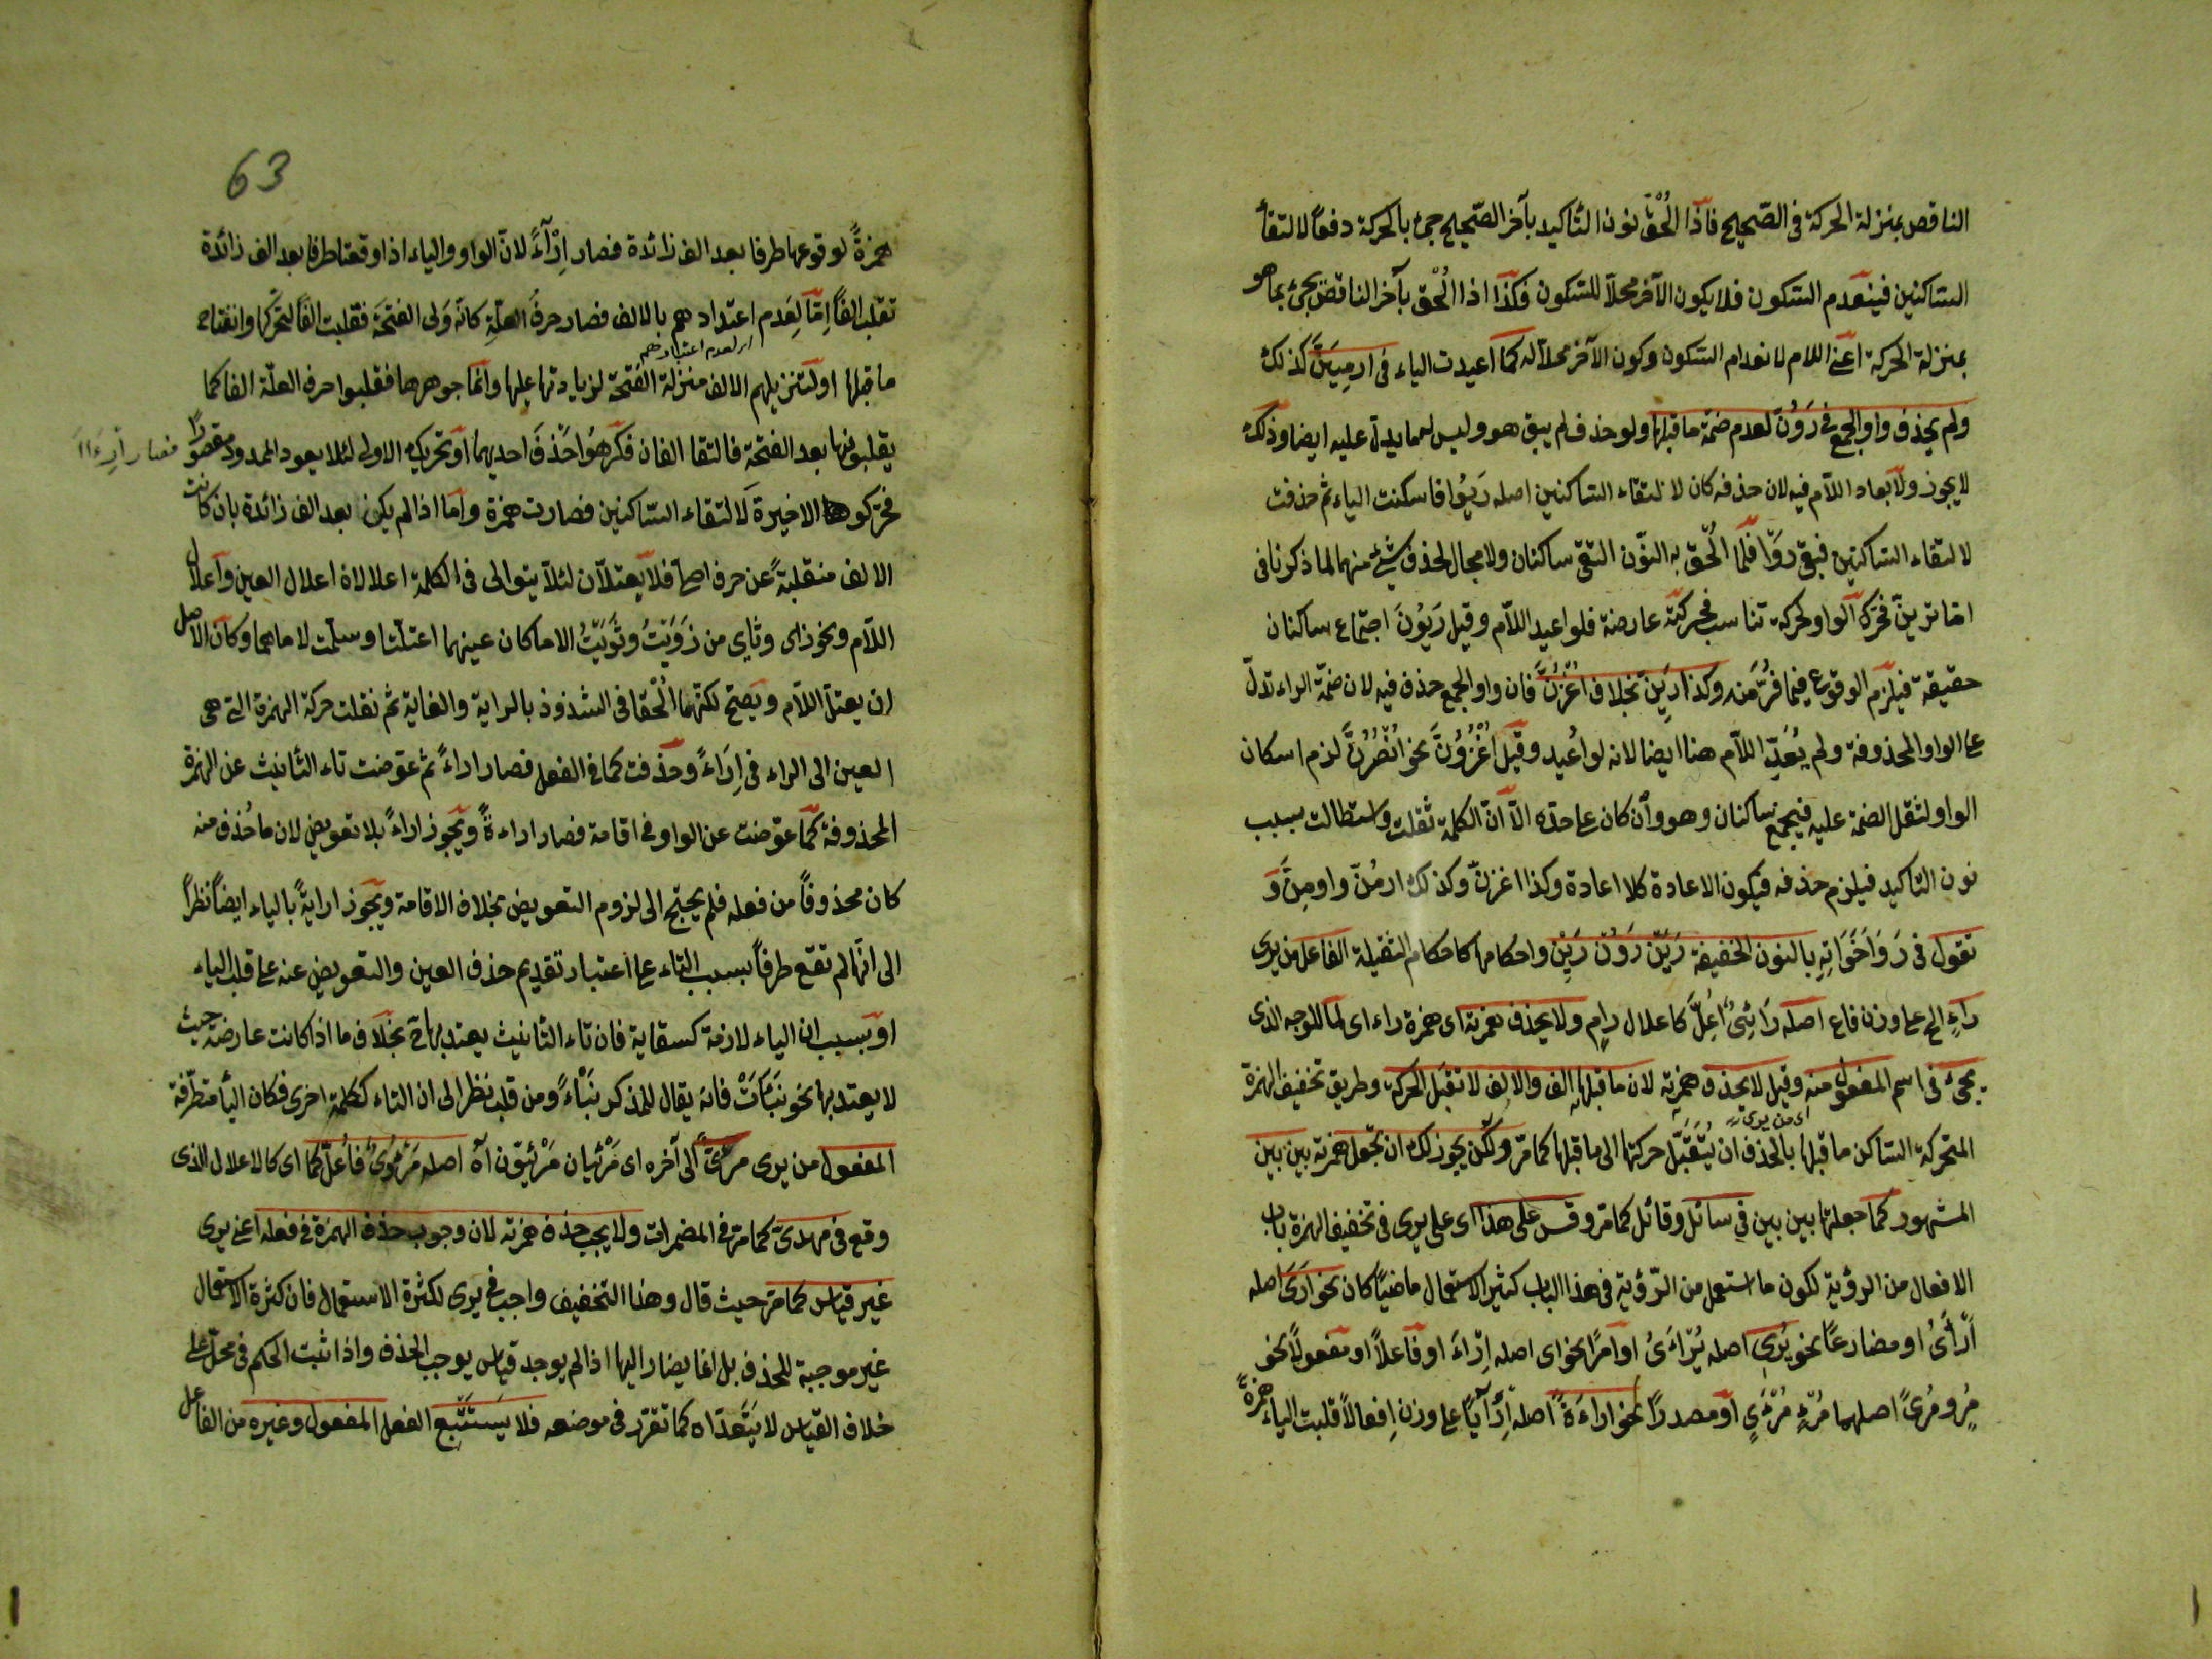 الناقص بمنزلة الحركة فى الصّحيح فاذا اُلْحْق نون التّاكيد بآخر الصّحيح جئ بالحركة دفعًا لالتقأ
السّاكنين فينعدم السّكون فلا يكون الآخر محلاّ للسّكون فكذا اذا اُلْحْق بآخر الناقص يجئ بما هو
بمنزلة الحركة اعنى اللام لانعدام السّكون وكون الآخر محلاّ له كما اعيدت الياء فى ارمِيَنَّ كذلك
ولم يحذف واو الجمع فى رَوُنَّ لعدم ضمّة ما قبلها ولو حذف لم يبق هو وليس لهما يدلّ عليه ايضا وذلك
لا يجوز ولا يعاد اللاّم فيه لان حذفه كان لالتقاء السّاكنين اصله رَيُوا فاسكنت الياء ثم حذفت
لالتقاء السّاكنين فبقى روا فلمّا اُلْحْق به النّون التقى ساكنان ولا مجال لحذف شئ منهما لما ذكرنا فى
امّا ترينّ فحرّك الواو بحركة تناسب فحركته عارضة فلو اعيد اللاّم وقيل رَيَوُنَ اجتماع ساكنان
حقيقة فيلزم الوقوع فيما فرّ منه وكذا رَيِنَّ بخلاف اُغْزُنَّ فان واو الجمع حذف فيه لان ضمّة الراء تدلّ
على الواو المحذوفة ولم يُعَدِ اللاّم هنا ايضا لانه لو اُعيد وقيل اُغْزُوُنَّ نحو اُنْصُرُنَّ لزم اسكان
الواو لثقل الضمة عليه فيجتمع ساكنان وهو وأن كان على حدّه الاّ انّ الكلمة ثقلت واستطالت بسبب
نون التاكيد فيلزم حذفه فيكون الاعادة كلا اعادة وكذا اغزِنّ وكذلك ارمُنّ وارمِنَّ وَ
تقول فى رَ وَاَخَوَاتِهِ بالنون الخفيفة رَيَنْ رَوُنْ رَيِنْ واحكامها كاحكام الثقيلة الفاعل من يرى
راءٍ الخ على وزن فاع اصله رَائِىٌ اُعِلّ كاعلال رامٍ ولا يحذف همزته اى همزة راء اى لما للوجه الذى
يجئ فى اسم المفعول منه وقيل لا يحذف همزته لان ما قبلها الف والالف لا تقبل الحركة وطريق تخفيف الهمزة
اى من يرى
المتحركة السّاكن ما قبلها بالحذف ان يُنْقَلَ حركتها الى ما قبلها كما مرّ ولكن يجوز لك ان تجعل همزته بين بين
المشهور كما جعلتها بين بين فى سائل وقائل كما مرّ وقس على هذا اى على يرى فى تخفيف الهمزة باب
الافعال من الرؤية لكون ما استعمل من الرّؤية فى هذا الباب كثير الاستعمال ماضيًا كان نحو ارَى اصله
اَرْأَىُ او مضارعًا نحو يُرِى اصله يُرْاءِىُ او امرًا نحو ارِ اصله اِرْاءِ او فاعلاً او مفعولاً نحو
مُرٍ ومُرىً اصلهما مُرْءٍ مُرْءَىٍ او مصدرًا نحو اراءَةً اصله اِرْآيًا على وزن اِفعالاً قلبت الياء همزةً
63
همزةً لوقوعها طرفا بعد الف زائدة فصار اِرْآءً لانّ الواو والياء اذا وقعتا طرفا بعد الف زائدة
تقلب الفًا اِمّا لِعَدم اعتدادهم بالالف فصار حرفُ العلّةِ كانّه وَلى الفتحَة فقلبت الفًا لتحرّكها وانفتاح
اى لعدم اعتبارهم
ما قبلها او لتنزيلهم الالف منزلة الفتحة لزيادتها عليها وانّها جوهرها فقلبوا حرف العلّة الفا كما
يقلبونها بعد الفتحة فالتقا الفان فكرهوا حَذْفَ احديهما او تحريك الاولى لئلا يعود الممدود مقصورًا
فصار اِرْءَاءَ
فحرّكوها الاخيرة لالتقاء السّاكنين فصارت همزة وامّا اذا لم يكن بعد الف زائدة بان كانت
الالف منقلبةً عن حرف اصلى فلا يعتلاّن لئلاّ يتوالى فى الكلمة اعلالان اعلال العين واعلال
اللاّم ونحو زاى وثاى من زَوَيْتُ وثَوَيْتُ الا ما كان عينهما اعتلّتا وسلمت لاماهما وكان الاصل
ان يعتلّ اللاّم ويصحّ لكنّهما اُلْحقا فى الشذوذ بالراية والغاية ثم نقلت حركة الهمزة التى هى
العين الى الراء فى اِرَاءً وحذفت كما فى الفعل فصار اراءً ثم عوّضت تاء التأنيث عن الهمزة
المحذوفة كما عوّضت عن الواو فى اقامة فصار اراءةً ويجوز اراءً بلا تعويض لان ما حُذف منه
كان محذوفًا من فعله فلم يحتج الى لزوم التعويض بخلاف الاقامة ويجوز ارايةً بالياء ايضًا نظرًا
الى انّها لم تقع طرفًا بسبب التاء على اعتبار تقديم حذف العين والتعويض عنه على قلب الياء
او بسبب ان الياء لازمة كسقاية فان تاء التأنيث يعتد بها ح بخلاف ما اذا كانت عارضة حيث
لا يعتد بها نحو نبّاءَتْ فانه يقال للمذكر نبّاءً ومن قلب نظر الى ان التاء ككلمة اخرى فكان اليأ متطرّفة
المفعول من يرى مرئىٌّ الى آخره اى مَرْئيان مَرْئيّون آه اصله مَرْءُوىٌ فأُعِلّ كما اى كالاعلال الذى
وقع فى مهدىّ كما مرّ فى المضمرات ولا يجب حذف همزته لان وجوب حذف الهمزة فى فعله اعنى يرى
غير قياس كما مرّ حيث قال وهذا التخفيف واجب فى يرى لكثرة الاستعمال فان كثرة الاستعمال
غير موجبة للحذف بل انما يصار اليها اذا لم يوجد قياس يوجب الحذف واذا ثبت الحكم فى محلّ على
خلاف القياس لا يَتَعدّاه كما تقرّر فى موضعه فلا يَسْتَتْبِع الفعل المفعول وغيره من الفاعل